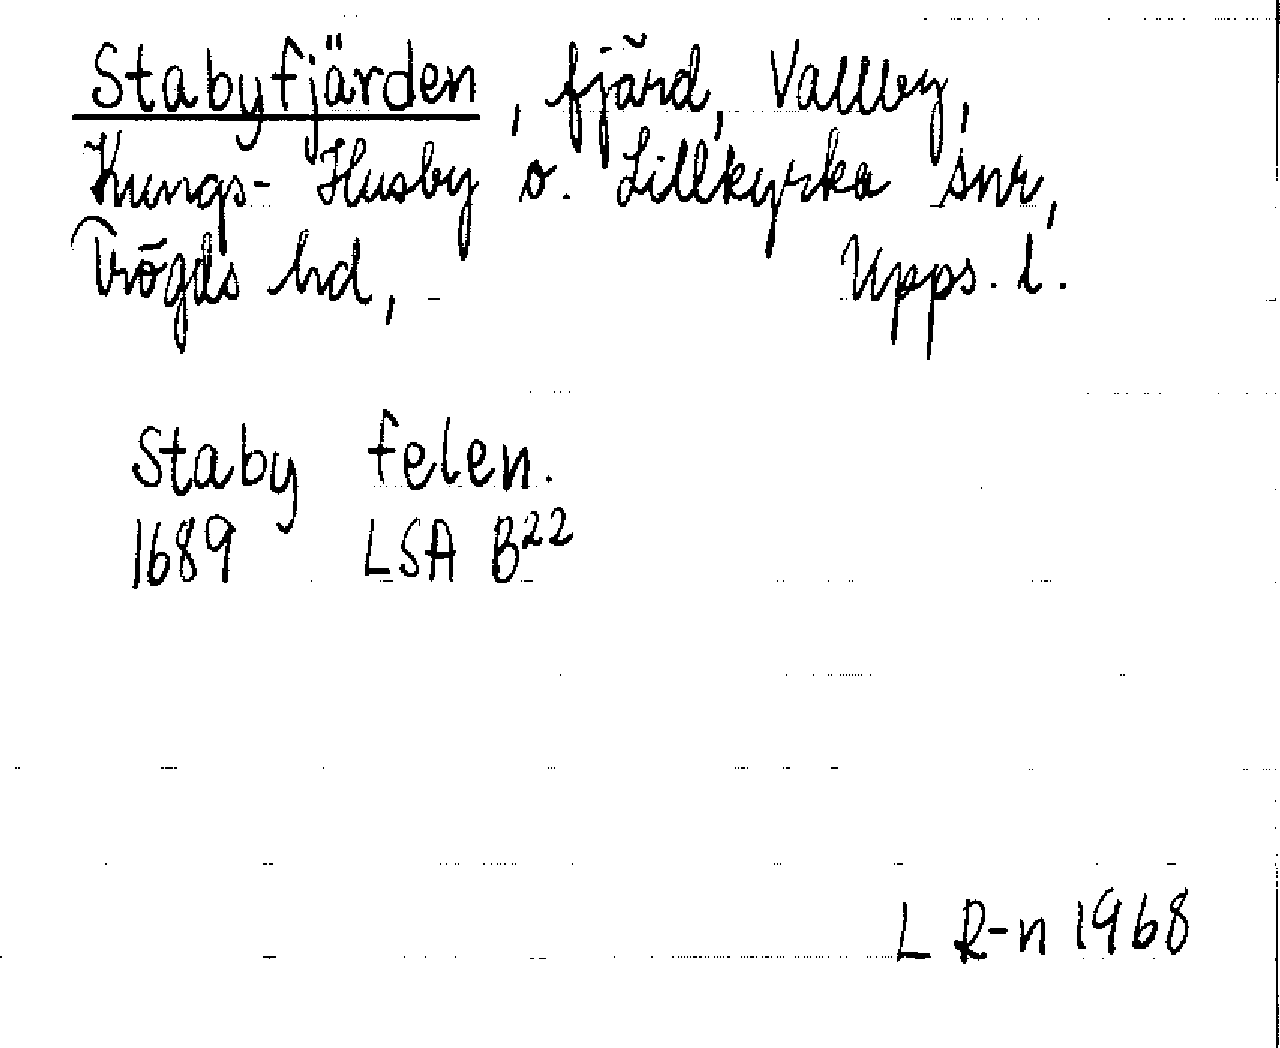 Stabyfjärden, fjärd, Vallby,
Kungs-Husby o. Lillkyrka snr,
Trögds hd, Upps. l.
Staby felen.
1689 LSA B22
L R-n 1968